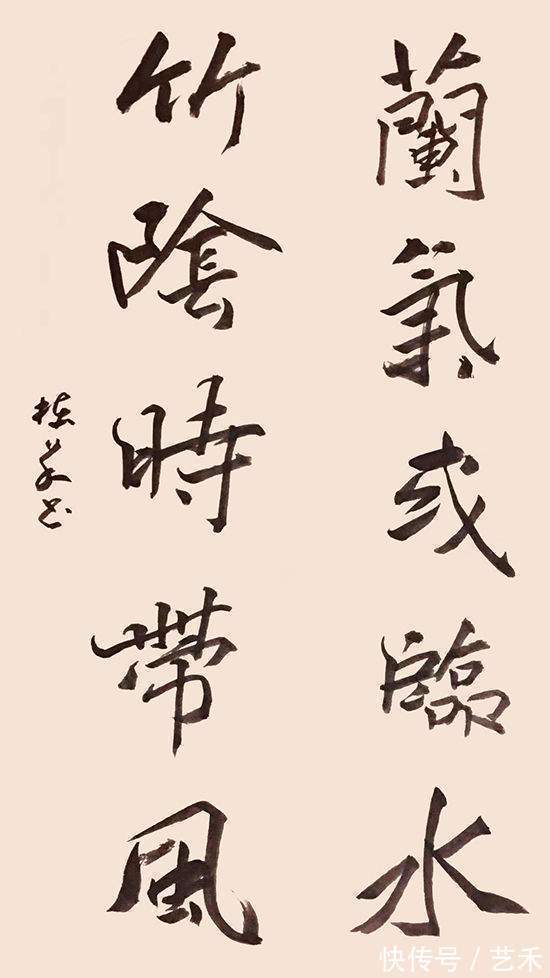 蘭氣或臨水
竹陰時帶風
書
快传号/艺禾